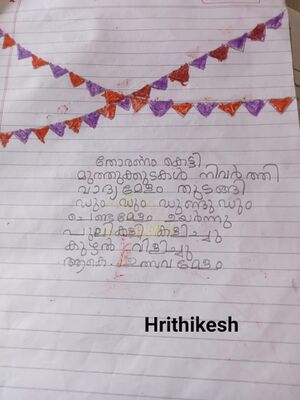 തോരണം കെട്ടി
മുത്തുക്കുടകൾ നിവർത്തി
വാദ്യമേളം തുടങ്ങി
ഡും ഡും ഡുണ്ടുഡും
ചെണ്ടമേളം ഉയർന്നു
പുലികളി കളിച്ചു
കുഴൽ വിളിച്ചു
ആകെ ഉത്സവമേളം
Hrithikesh